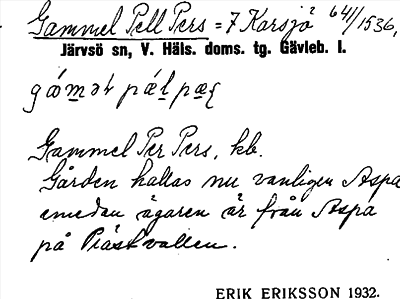 Gammel Pell Pers = 7 Karsjö 641/1536,
Järvsö sn, V. Häls. doms. tg. Gävleb. l.
Gammel Per Pers, kb.
Gården kallas nu vanligen Aspa
emedan ägaren är från Aspa
på
ERIK ERIKSSON 1932.